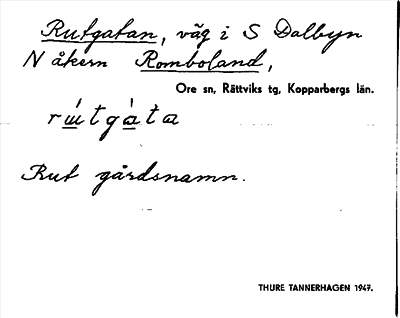 Rutgatan, väg i S Dalbyn
N åkern Romboland,
Ore sn, Rättviks tg, Kopparbergs län.
rútgàta
Rut gårdsnamn.
THURE TANNERHAGEN 1947.